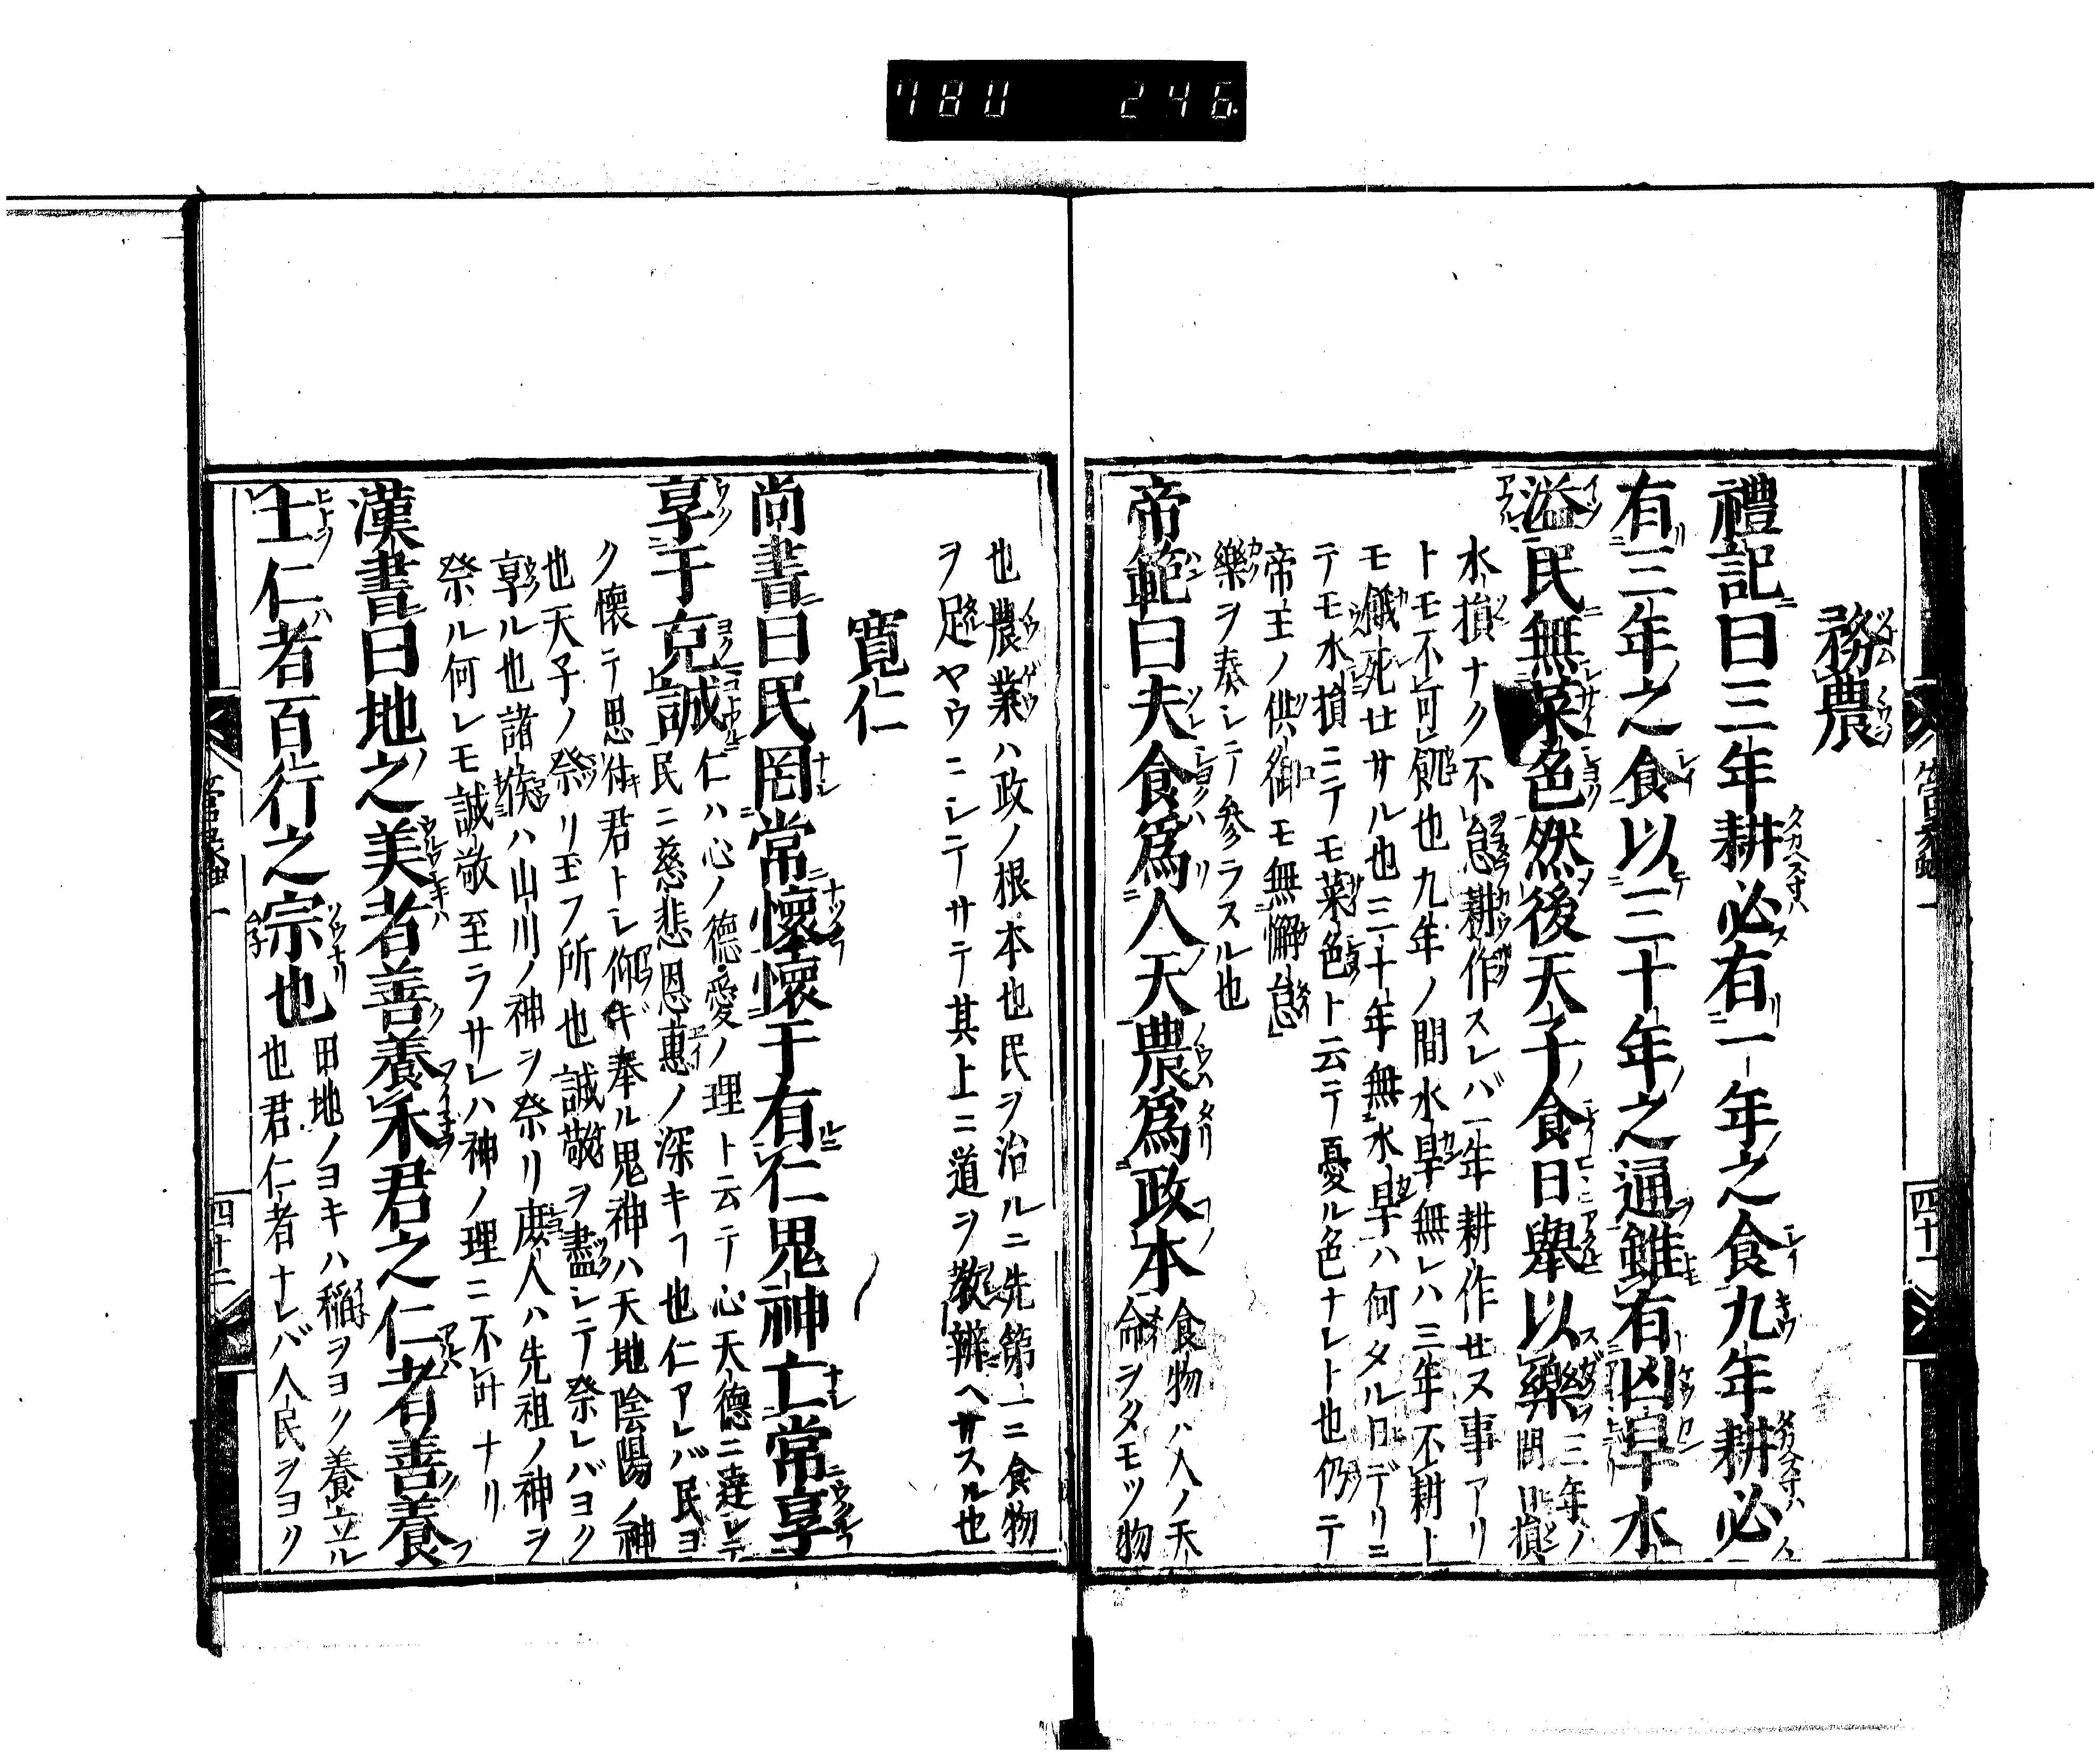 780 246
務農
禮記曰三年耕必有一年之食九年耕必
有三年之食以三十年之通雖有凶旱水
溢民無菜色然後天子食日舉以樂三年ノ間
水損ナク不怠耕作スレバ一年耕作セス事アリ
トモ不可飢也九年ノ間水旱無レハ三年不耕ト
モ餓死セサル也三十年無水旱ハ何タルヒデリニ
テモ水損ニテモ菜色ト云テ憂ル色ナレト也仍テ
帝王ノ供御モ無懈怠
樂ヲ奏シテ參ラスル也
帝範曰夫食爲人天農爲政本食物ハ人ノ天
命ヲタモツ物
也農業ハ政ノ根本也民ヲ治ルニ先第一ニ食物
ヲ足ヤウニシテサテ其上ニ道ヲ教辨ヘサスル也
寛仁
尚書曰民罔常懷懷于有仁鬼神亡常享
享于克誠仁ハ心ノ德愛ノ理ト云テ心天德ニ達シテ
民ニ慈悲恩惠ノ深キヿ也仁アレバ民ヨ
ク懷テ思付君トシ仰ギ奉ル鬼神ハ天地陰陽ノ神
也天子ノ祭リ玉フ所也誠敬ヲ盡シテ祭レバヨク
享ル也諸侯ハ山川ノ神ヲ祭リ庶人ハ先祖ノ神ヲ
祭ル何レモ誠敬至ラサレハ神ノ理ニ不叶ナリ
漢書曰地之美者善養禾君之仁者善養
士仁者百行之宗也田地ノヨキハ稲ヲヨク養立ル
也君仁者ナレバ人民ヲヨク
四十二